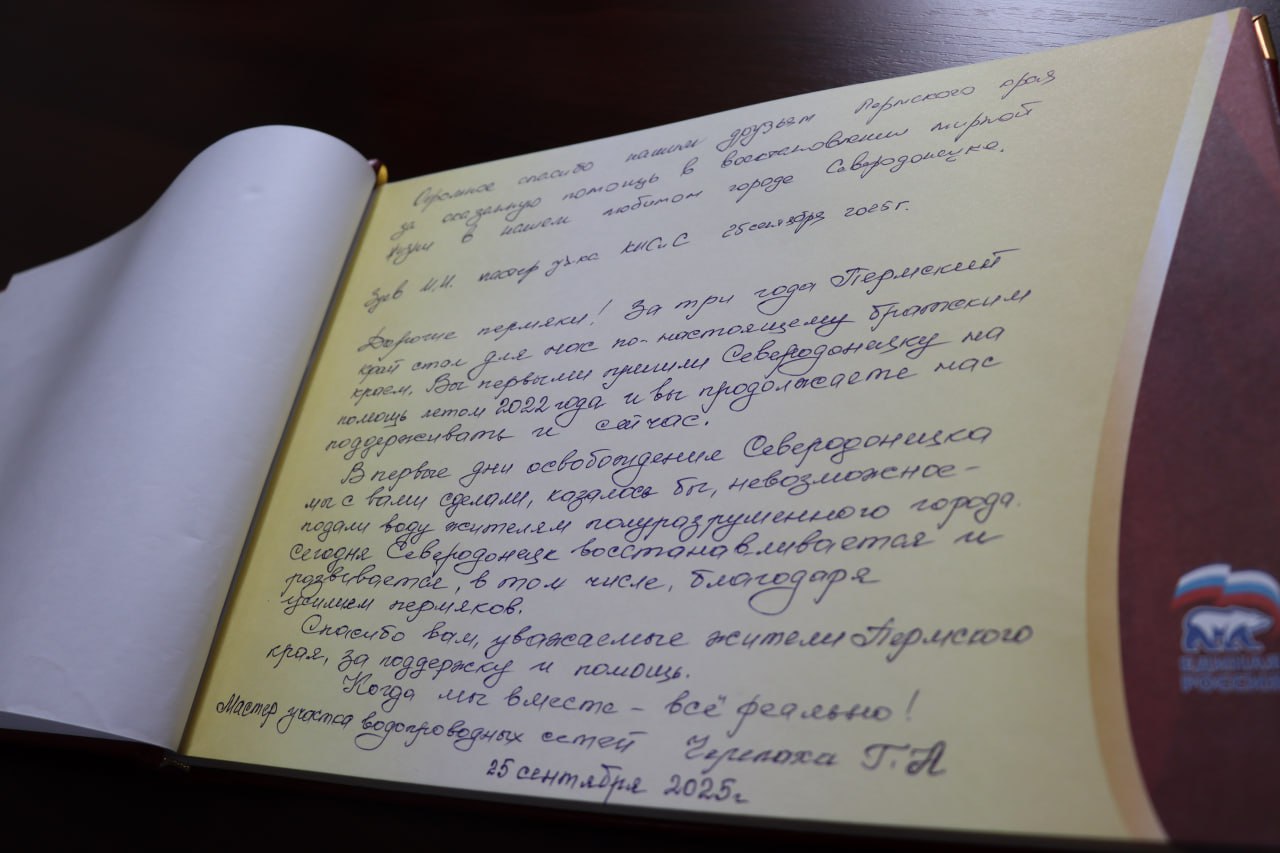 Огромное спасибо нашим друзьям Пермского края
за оказанную помощь в восстановлении мирной
жизни в нашем любимом городе Северодонецке.
Зуев И.И. 25 сентября 2025 г.
Дорогие пермяки! За три года Пермский
край стал для нас по-настоящему братским
краем. Вы первыми пришли Северодонецку на
помощь летом 2022 года и вы продолжаете нас
поддерживать и сейчас.
В первые дни освобождения Северодонецка
мы с вами сделали, казалось бы, невозможное -
подали воду жителям полуразрушенного города.
Сегодня Северодонецк восстанавливается и
развивается, в том числе, благодаря
усилиям пермяков.
Спасибо вам, уважаемые жители Пермского
края, за поддержку и помощь.
Когда мы вместе - всё реально!
Мастер участка водопроводных сетей Черепаха Г.А
25 сентября 2025г
ЕДИНАЯ
РОССИЯ